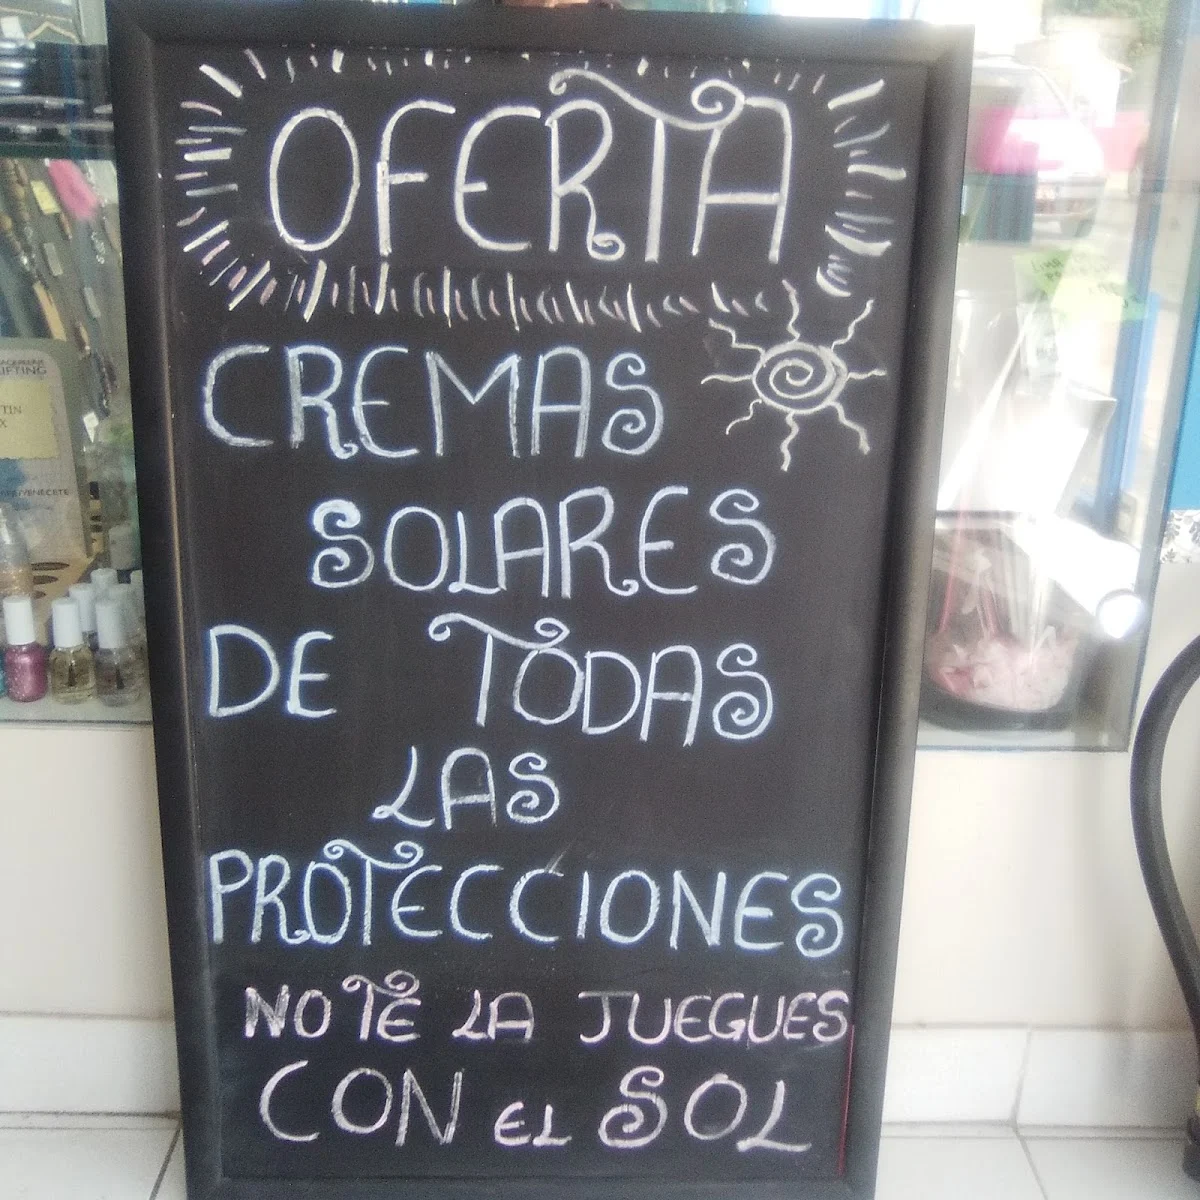 OFERTA
CREMAS
SOLARES
DE TODAS
LAS
PROTECCIONES
NO TE LA JUEGUES
CON EL SOL
IFTING
TIN
X